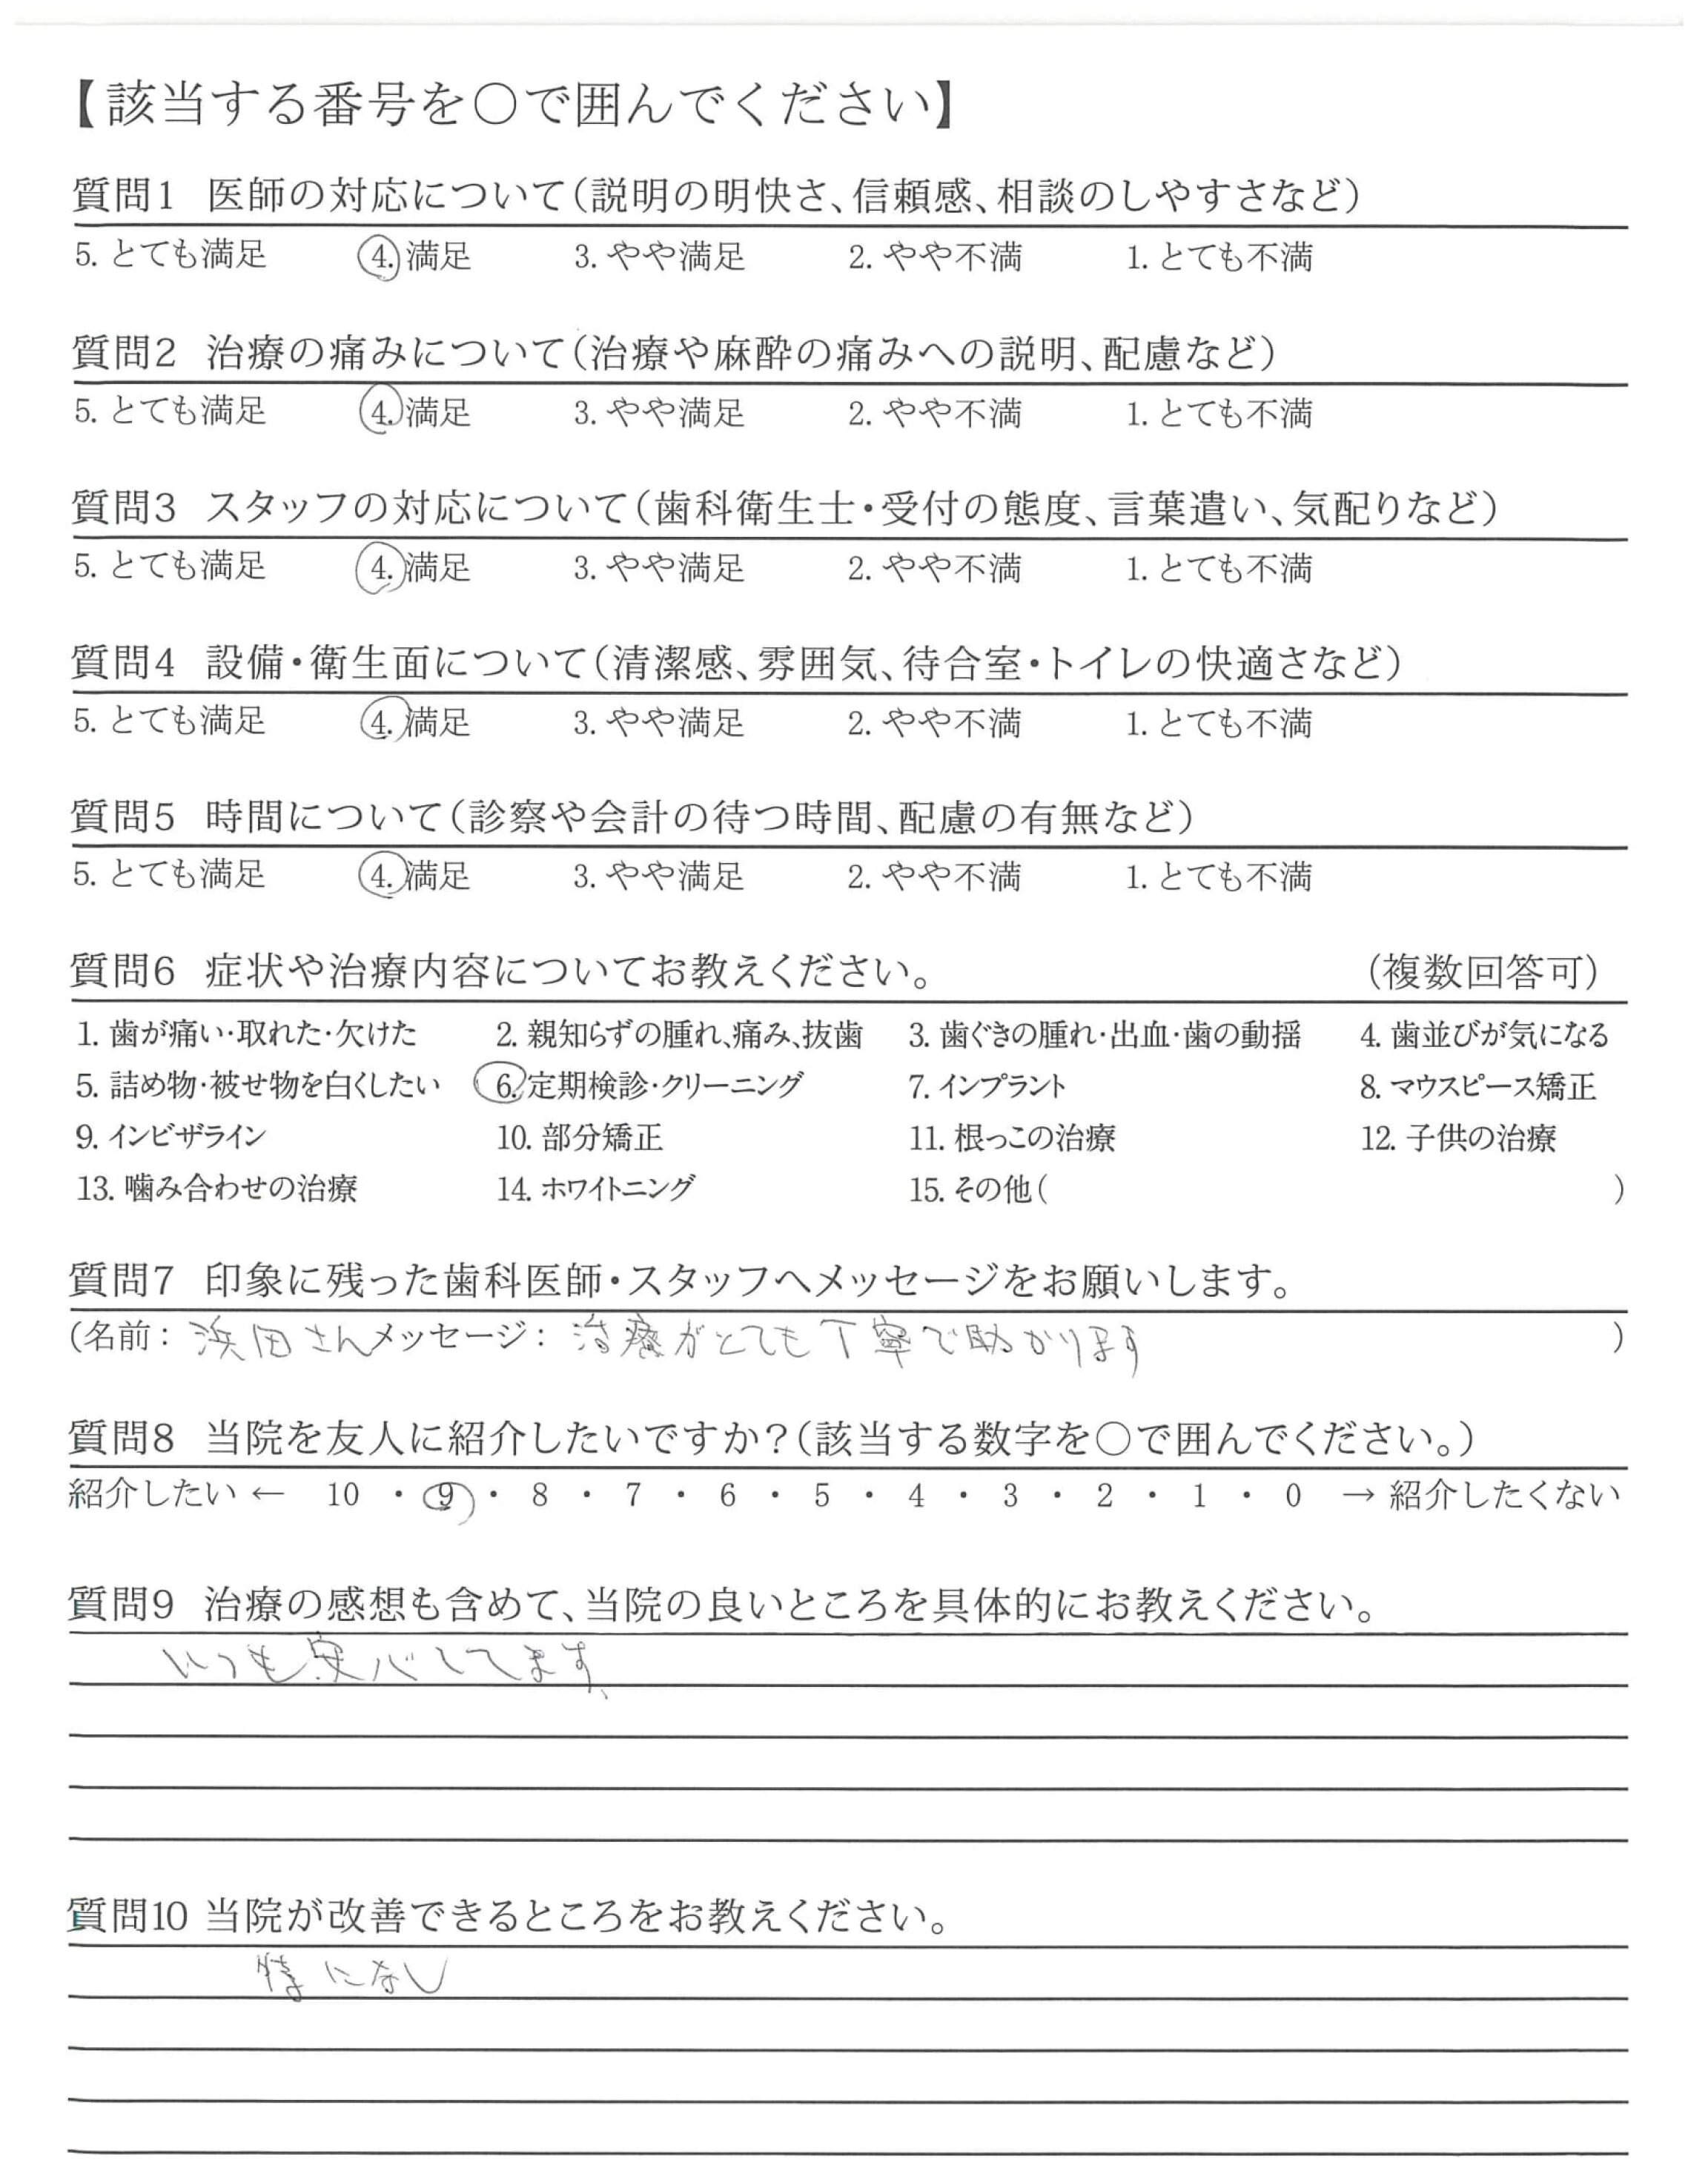 【該当する番号を〇で囲んでください】
質問1 医師の対応について(説明の明快さ、信頼感、相談のしやすさなど)
5. とても満足 4. 満足 3. やや満足 2. やや不満 1. とても不満
質問2 治療の痛みについて(治療や麻酔の痛みへの説明、配慮など)
5. とても満足 4. 満足 3. やや満足 2. やや不満 1. とても不満
質問3 スタッフの対応について(歯科衛生士・受付の態度、言葉遣い、気配りなど)
5. とても満足 4. 満足 3. やや満足 2. やや不満 1. とても不満
質問4 設備・衛生面について(清潔感、雰囲気、待合室・トイレの快適さなど)
5. とても満足 4. 満足 3. やや満足 2. やや不満 1. とても不満
質問5 時間について(診察や会計の待つ時間、配慮の有無など)
5. とても満足 4. 満足 3. やや満足 2. やや不満 1. とても不満
質問6 症状や治療内容についてお教えください。 (複数回答可)
1. 歯が痛い・取れた・欠けた 2. 親知らずの腫れ、痛み、抜歯 3. 歯ぐきの腫れ・出血・歯の動揺 4. 歯並びが気になる
5. 詰め物・被せ物を白くしたい 6. 定期検診・クリーニング 7. インプラント 8. マウスピース矯正
9. インビザライン 10. 部分矯正 11. 根っこの治療 12. 子供の治療
13. 噛み合わせの治療 14. ホワイトニング 15. その他( )
質問7 印象に残った歯科医師・スタッフへメッセージをお願いします。
(名前: 浜田さん メッセージ: 治療がとても丁寧で助かります )
質問8 当院を友人に紹介したいですか?(該当する数字を〇で囲んでください。)
紹介したい ← 10 ・ 9 ・ 8 ・ 7 ・ 6 ・ 5 ・ 4 ・ 3 ・ 2 ・ 1 ・ 0 → 紹介したくない
質問9 治療の感想も含めて、当院の良いところを具体的にお教えください。
いつも安心してます、
質問10 当院が改善できるところをお教えください。
特になし